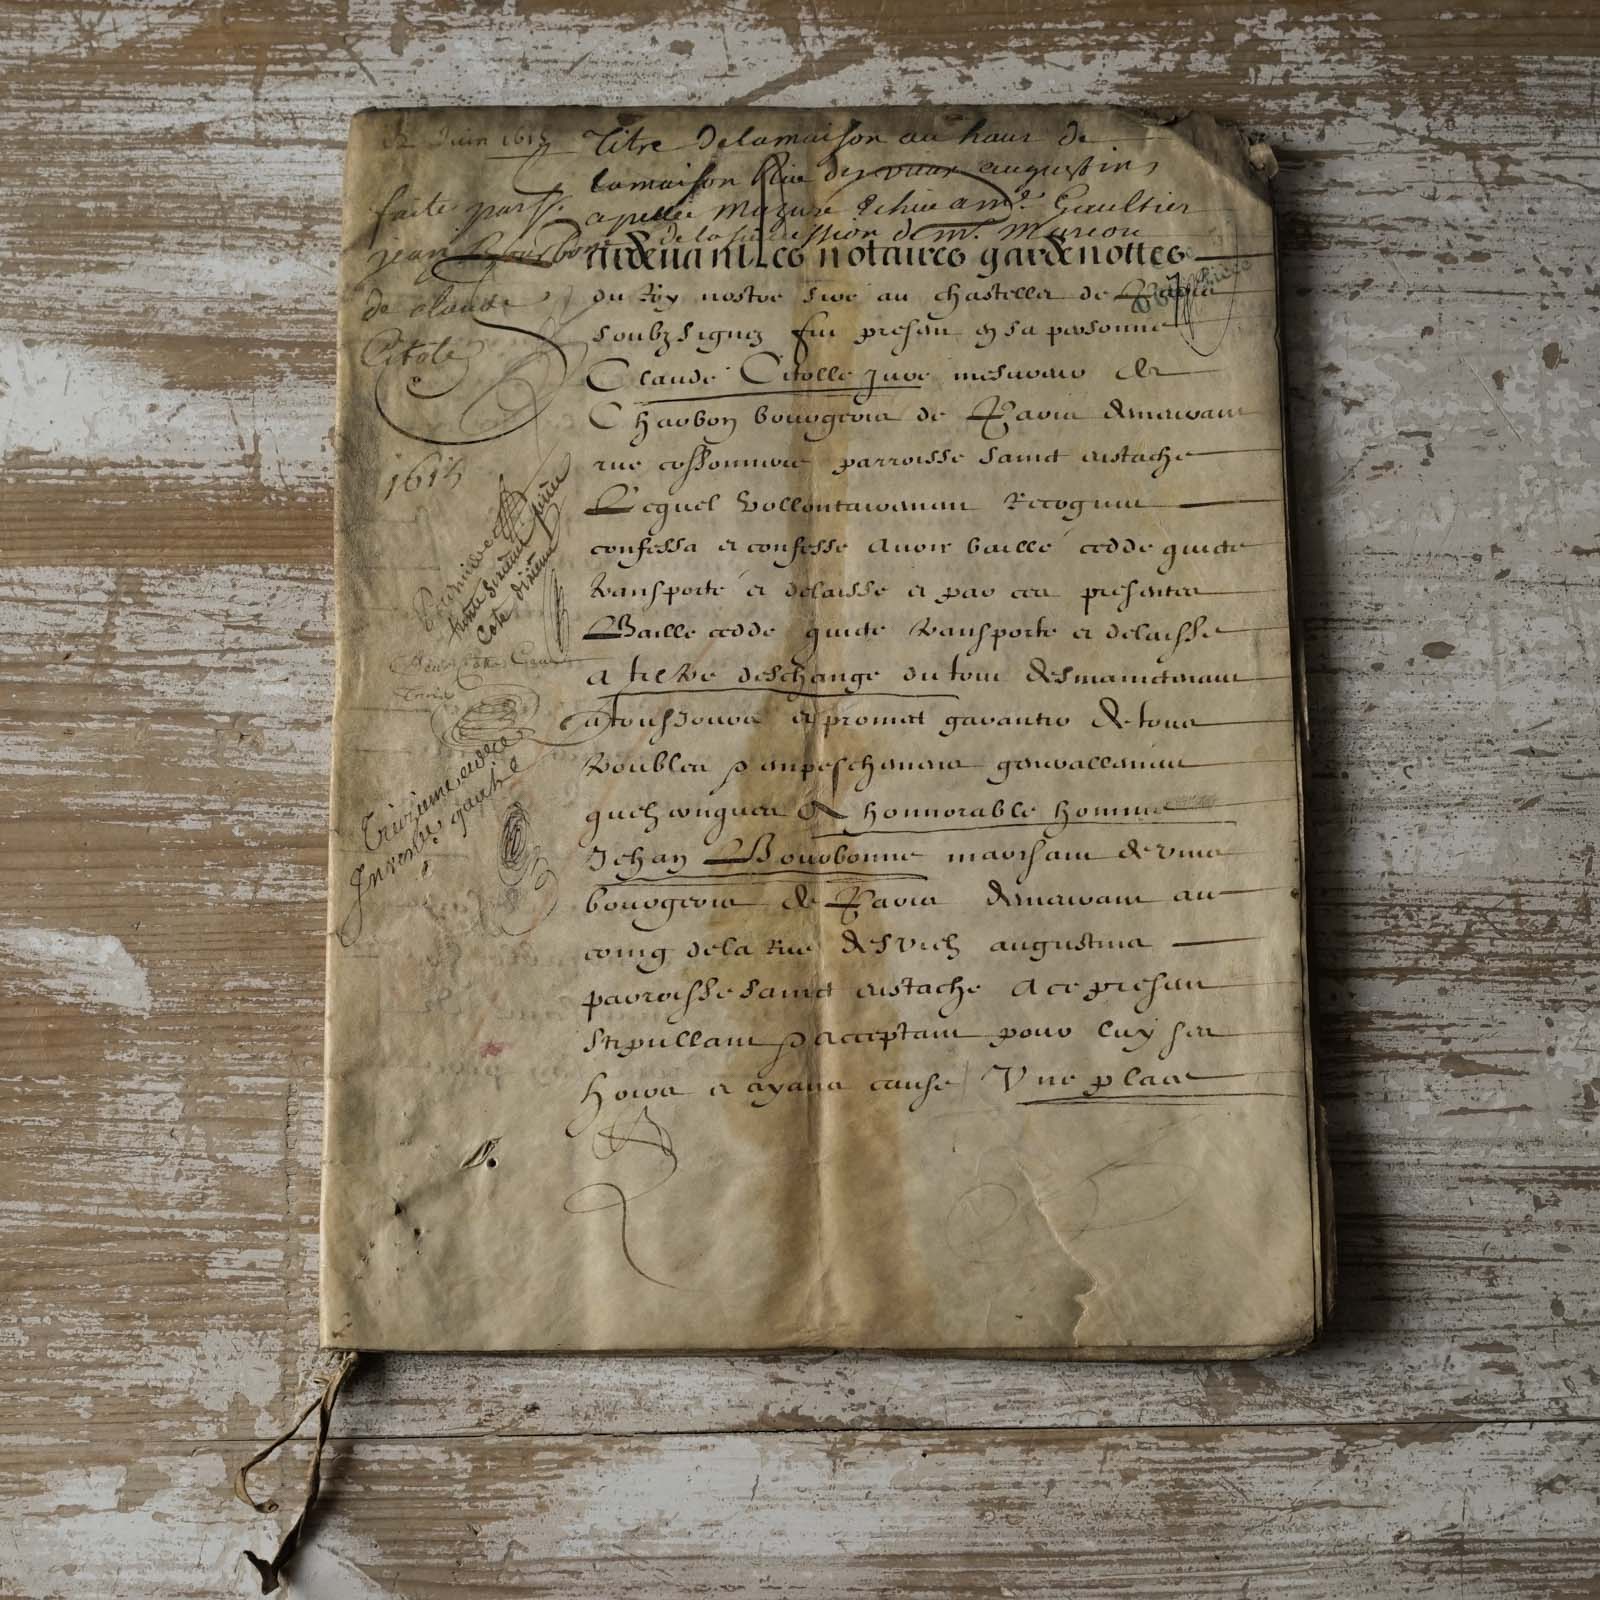 12 Juin 1615
Titre de la maison au haut de
la maison Rue des vieux augustins
apellee Mazure Echue a mr. Gaultier
de la succession de mr. Mareou
faite par
jean Bourbonne
de claude
Citole
1615
Pardevant Les notaires gardenottes
du Roy nostre sire au chastellet de Paris
soubzsignez fut present en sa personne
Claude Citolle Juré mesureur de
Charbon bourgeois de Paris demeurant
rue cossonnerie parroisse sainct eustache
Lequel vollontairement Recognut
confessa et confesse avoir baillé cedde quicte
transporté et delaissé et par ces presentes
Baille cedde quicte transporte et delaisse
a tiltre deschange du tout desmaintenant
a tousjours et promet garantir de tous
troubles & empeschemens generallement
quelzconques A honnorable homme
Jehan Bourbonne marchant de vins
bourgeois de Paris demeurant au
coing de la Rue des vielz augustins
parroisse sainct eustache A ce present
stipullant & acceptant pour luy ses
hoirs et ayans cause Une place
trente sixieme piece
Cote dixieme
Troizieme piece
Inventoriée